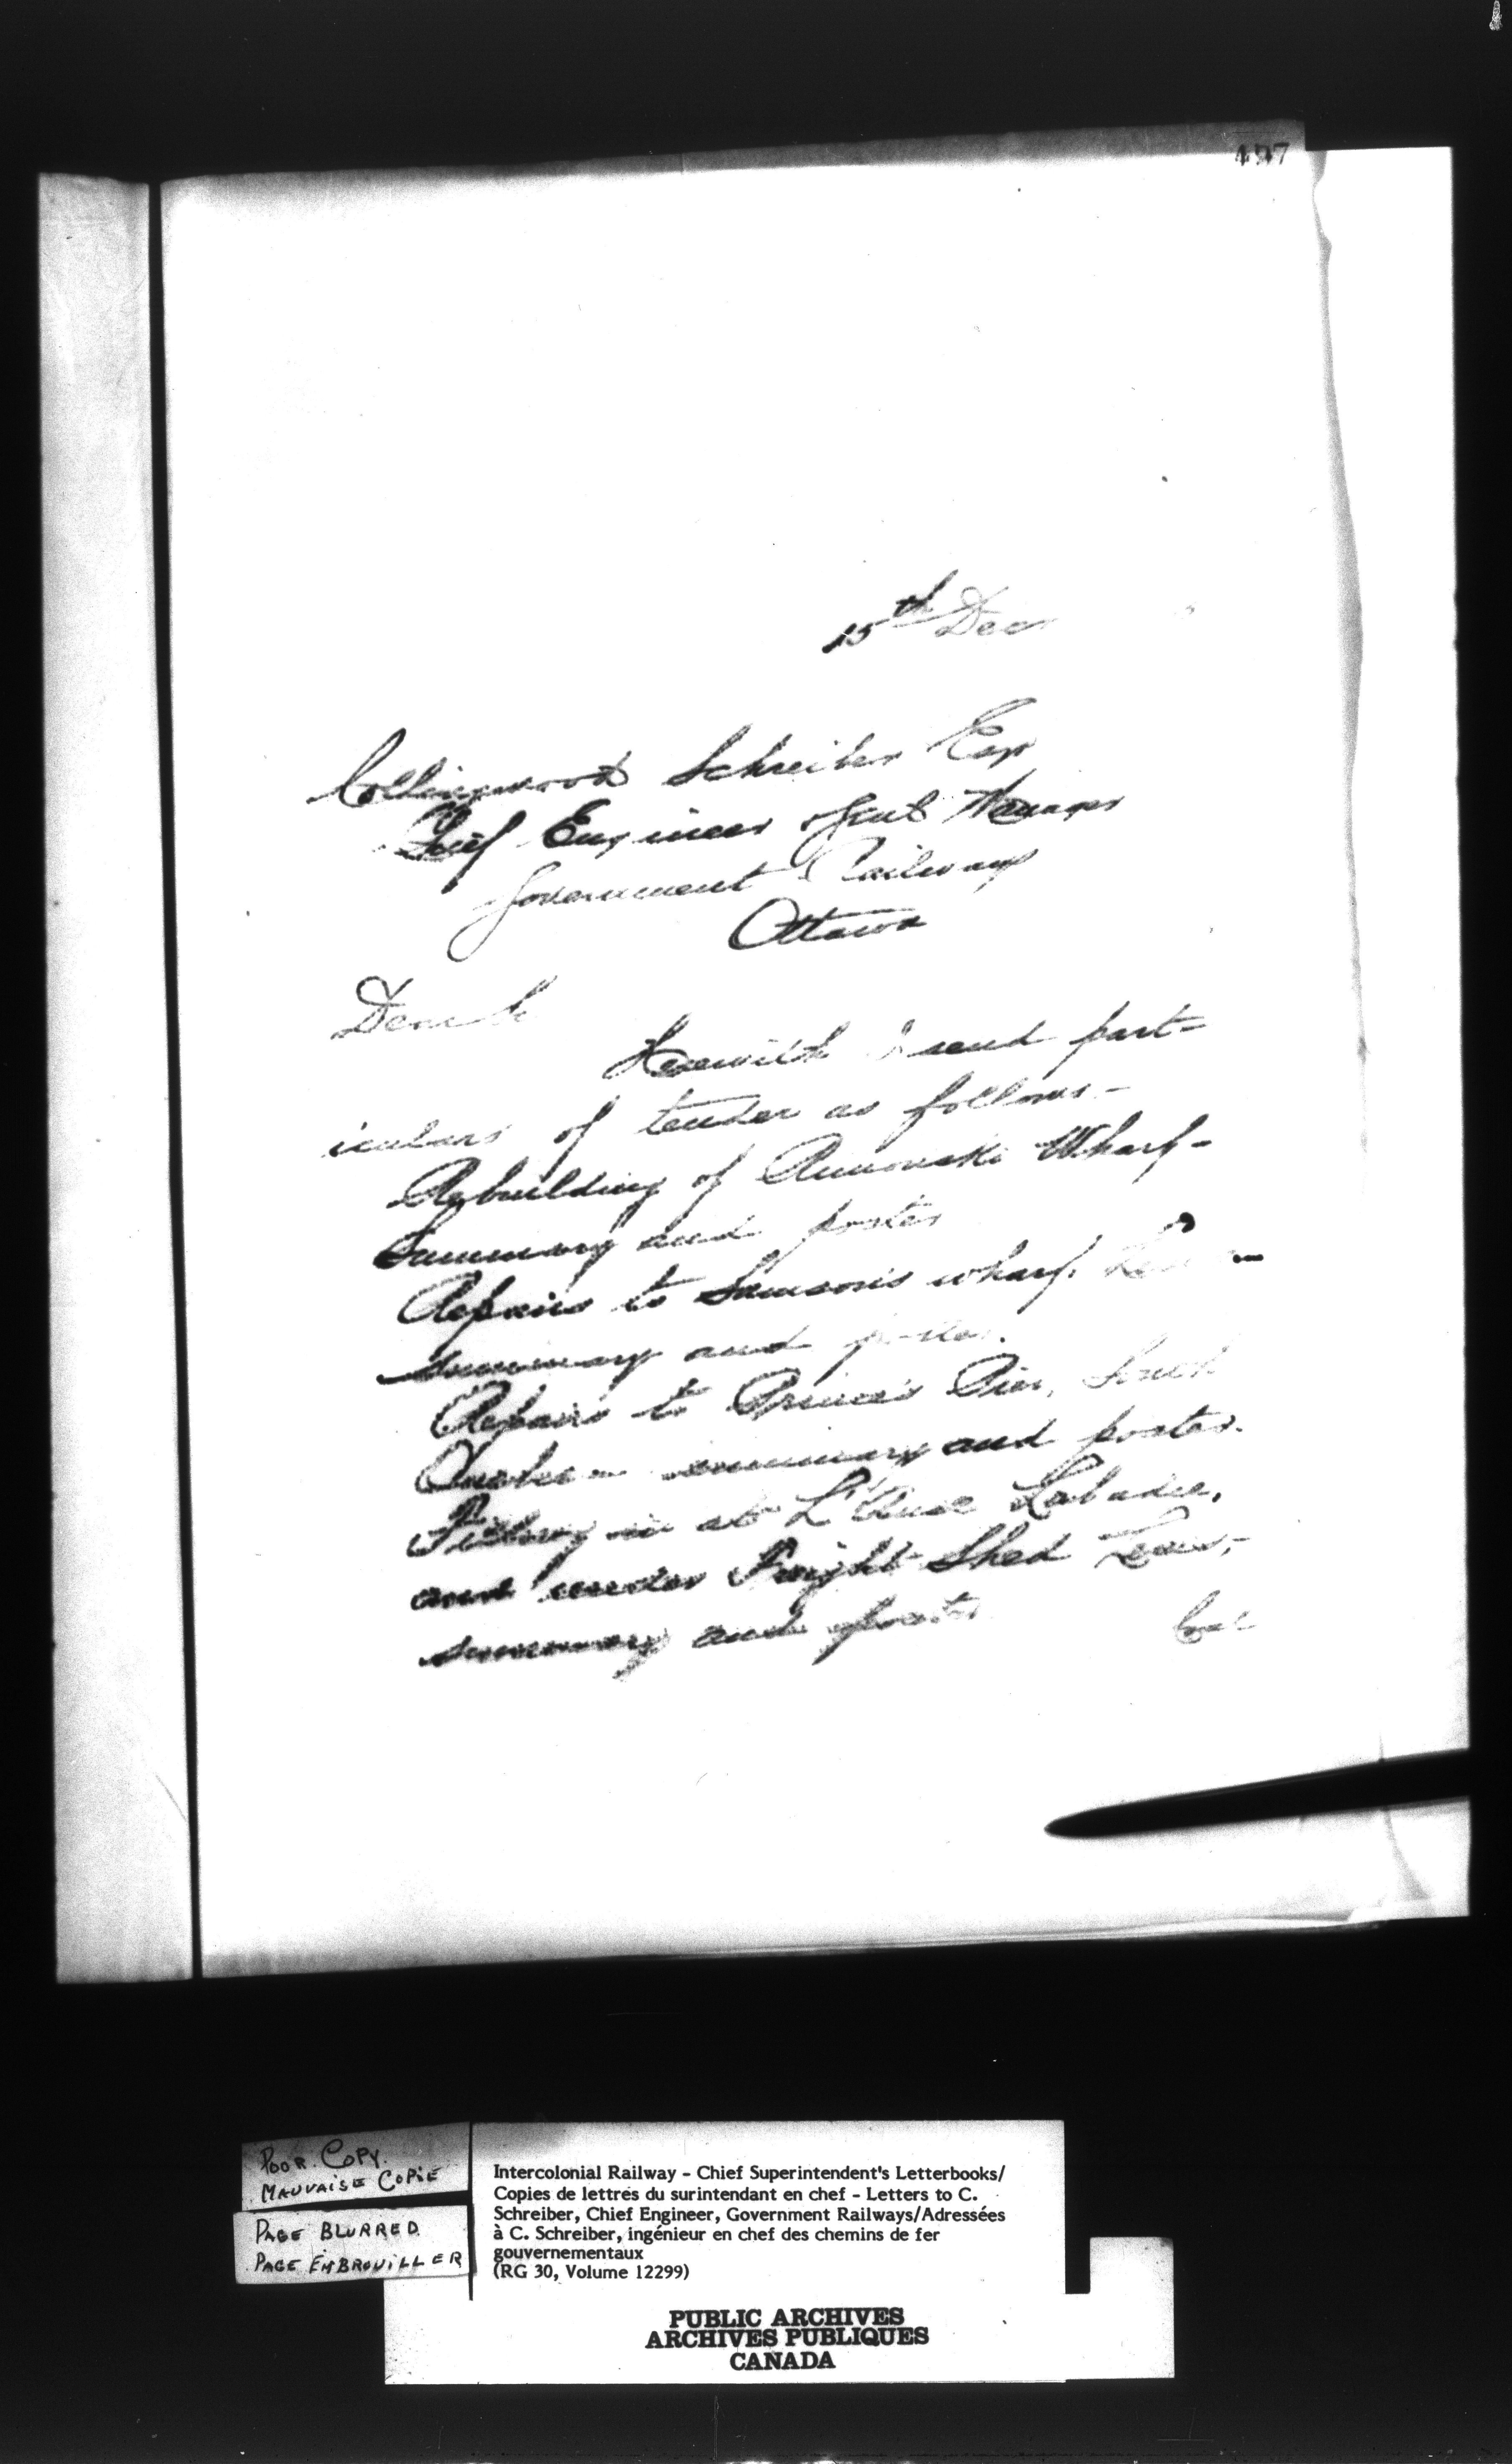 15th Dec
Collingwood Schreiber Esq
Chief Engineer & Genl Manager
Government Railways
Ottawa
Dear
Herewith I send part=
iculars of tender as follows -
Rebuilding of Rimouski Wharf -
Summary and poster
Repairs to Samson's wharf,
summary and poster.
Repairs to Prince's Pier, South
Quebec - summary and poster.
Filling in at L'Anse Labadie,
and under Freight Shed Levis,-
summary and poster
POOR COPY.
MAUVAISE COPIE
PAGE BLURRED
PAGE EMBROUILLER
Intercolonial Railway - Chief Superintendent's Letterbooks/
Copies de lettres du surintendant en chef - Letters to C.
Schreiber, Chief Engineer, Government Railways/Adressées
à C. Schreiber, ingénieur en chef des chemins de fer
gouvernementaux
(RG 30, Volume 12299)
PUBLIC ARCHIVES
ARCHIVES PUBLIQUES
CANADA